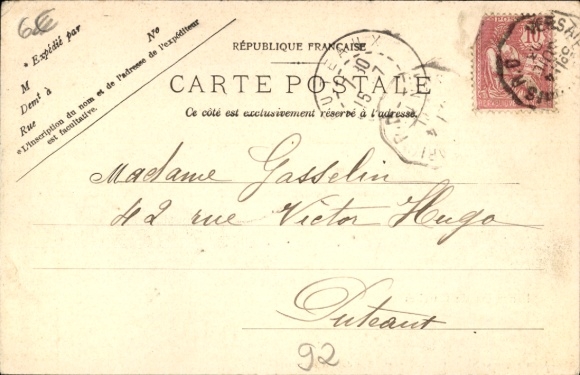 6€
* Expédié par
No
M
Demt à
Rue
*L'inscription du nom et de l'adresse de l'expéditeur
est facultative.
RÉPUBLIQUE FRANÇAISE
CARTE POSTALE
Ce côté est exclusivement réservé à l'adresse.
PUTEAUX
10
Madame Gasselin
42 rue Victor Hugo
Puteaux
92